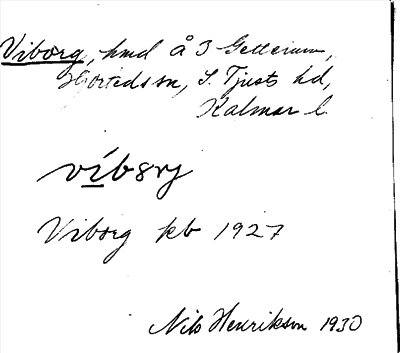 Viborg, hmd å 3 Getterum,
Hjorteds sn, S. Tjusts hd,
Kalmar l.
vibsrj
Viborg kb 1927
Nils Henrikson 1930